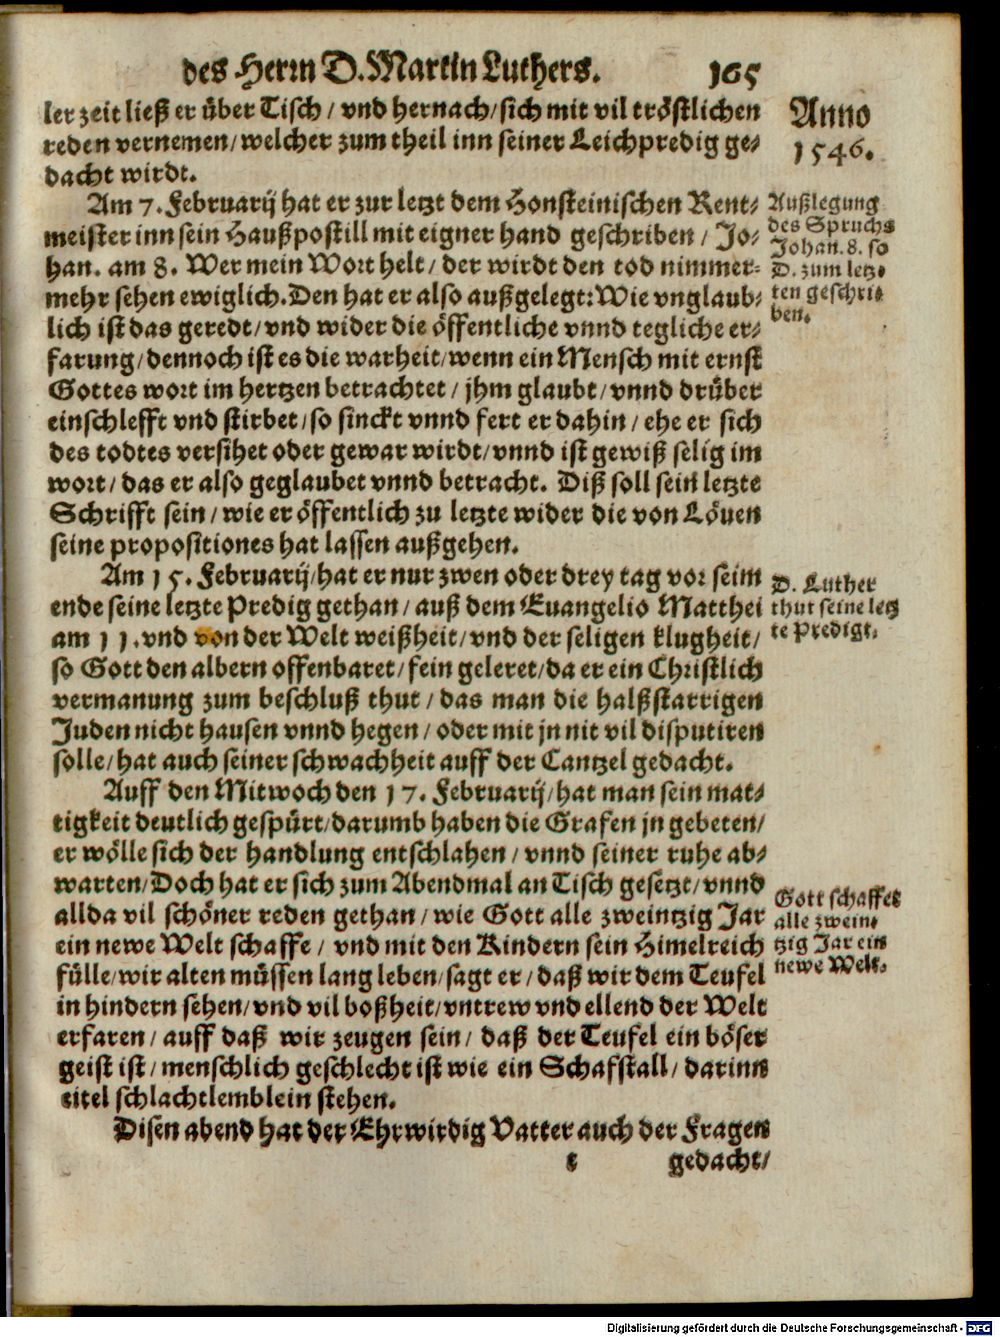 des Herrn D. Martin Luthers. 165
ler zeit ließ er über Tisch / vnd hernach / sich mit vil tröstlichen
reden vernemen / welcher zum theil inn seiner Leichpredig ge-
dacht wirdt.
Anno
1546.
Am 7. Februarij hat er zur letzt dem Honsteinischen Rent-
meister inn sein Haußpostill mit eigner hand geschriben / Jo-
han. am 8. Wer mein Wort helt / der wirdt den tod nimmer-
mehr sehen ewiglich. Den hat er also außgelegt: Wie vnglaub-
lich ist das geredt / vnd wider die öffentliche vnnd tegliche er-
farung / dennoch ist es die warheit / wenn ein Mensch mit ernst
Gottes wort im hertzen betrachtet / jhm glaubt / vnnd drüber
einschlefft vnd stirbet / so sinckt vnnd fert er dahin / ehe er sich
des todtes versihet oder gewar wirdt / vnnd ist gewiß selig im
wort / das er also geglaubet vnnd betracht. Diß soll sein letzte
Schrifft sein / wie er öffentlich zu letzte wider die von Löuen
seine propositiones hat lassen außgehen.
Außlegung
des Spruchs
Johan. 8. so
D. zum letz-
ten geschri-
ben.
Am 15. Februarij / hat er nur zwen oder drey tag vor seim
ende seine letzte Predig gethan / auß dem Euangelio Matthei
am 11. vnd von der Welt weißheit / vnd der seligen klugheit /
so Gott den albern offenbaret / fein geleret / da er ein Christlich
vermanung zum beschluß thut / das man die halßstarrigen
Juden nicht hausen vnnd hegen / oder mit jn nit vil disputiren
solle / hat auch seiner schwachheit auff der Cantzel gedacht.
D. Luther
thut seine letz
te Predigt.
Auff den Mitwoch den 17. Februarij / hat man sein mat-
tigkeit deutlich gespürt / darumb haben die Grafen jn gebeten /
er wölle sich der handlung entschlahen / vnnd seiner ruhe ab-
warten / Doch hat er sich zum Abendmal an Tisch gesetzt / vnnd
allda vil schöner reden gethan / wie Gott alle zweintzig Jar
ein newe Welt schaffe / vnd mit den Kindern sein Himelreich
fülle / wir alten müssen lang leben / sagt er / daß wir dem Teufel
in hindern sehen / vnd vil boßheit / vntrew vnd ellend der Welt
erfaren / auff daß wir zeugen sein / daß der Teufel ein böser
geist ist / menschlich geschlecht ist wie ein Schafstall / darinn
eitel schlachtlemblein stehen.
Gott schaffet
alle zwein-
tzig Jar ein
newe Welt.
Disen abend hat der Ehrwirdig Vatter auch der Fragen
t gedacht /
Digitalisierung gefördert durch die Deutsche Forschungsgemeinschaft - DFG